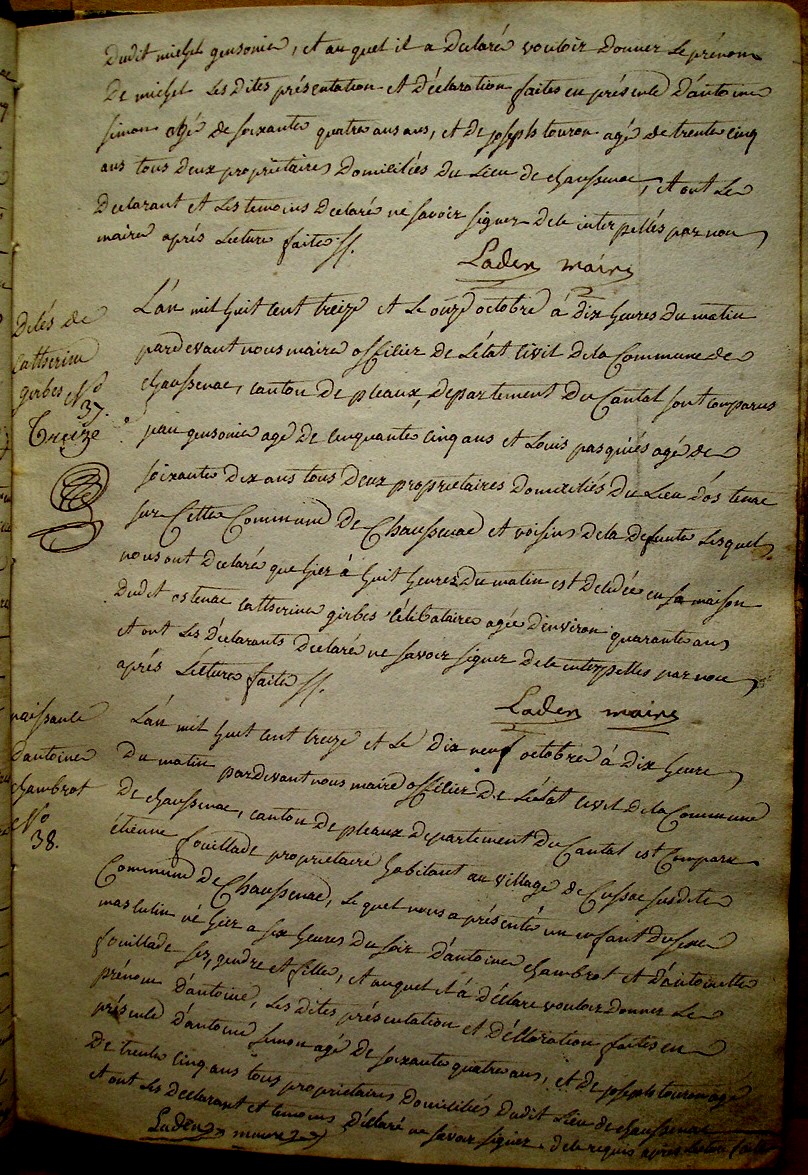 Dudit michel gensonie, et auquel il a déclaré vouloir donner le prénom
De michel les dites présentation et déclaration faites en présence d'antoine
simon agé de soixante quatre ans ans, et de joseph touron agé de trente cinq
ans tous deux proprietaires domiciliés du Lieu de chaussenac, et ont Le
Declarant et les temoins declaré ne savoir signer de ce interpellés par nous
maire après Lecture faite //.
Laden maire
Décés de
Catherine
girbes N°
37.
Treize
L'an mil huit cent treize et le onze octobre à dix heures du matin
pardevant nous maire officier de L'état civil de la Commune de
chaussenac, canton de pleaux, departement du Cantal sont comparus
jean gensonie agé de cinquante cinq ans et Louis pasquiés agé de
soixante dix ans tous deux proprietaires domiciliés du Lieu d'ostenac
sur Cette Commune De Chaussenac et voisins de la defunte Lesquels
nous ont declaré que hier à huit heures du matin est décédée en sa maison
dudit ostenac catherine girbes célibataire agée d'environ quarante ans
et ont Les Déclarants déclaré ne savoir signer de ce interpellés par nous
après Lecture faite //.
Laden maire
naissance
d'antoine
chambrot
N°
38.
L'an mil huit cent treize et le dix neuf octobre à dix heures
du matin pardevant nous maire officier de L'état civil de la Commune
De chaussenac, canton de pleaux departement du Cantal est Comparu
étienne fouillade proprietaire habitant au village de Cussac susdite
Commune de Chaussenac, Lequel nous a présenté un enfant du sexe
masculin né hier a six heures du soir d'antoine chambrot et d'antoinette
fouillade ses, gendre et fille, et auquel il a déclaré vouloir donner Le
prénom d'antoine, Les dites présentation et déclaration faites en
présence d'antoine simon agé de soixante quatre ans, et de joseph touron agé
De trente cinq ans tous proprietaires domiciliés dudit Lieu de chaussenac
et ont Le Declarant et temoins déclaré ne savoir signer de ce requis après Lecture faite
Laden maire